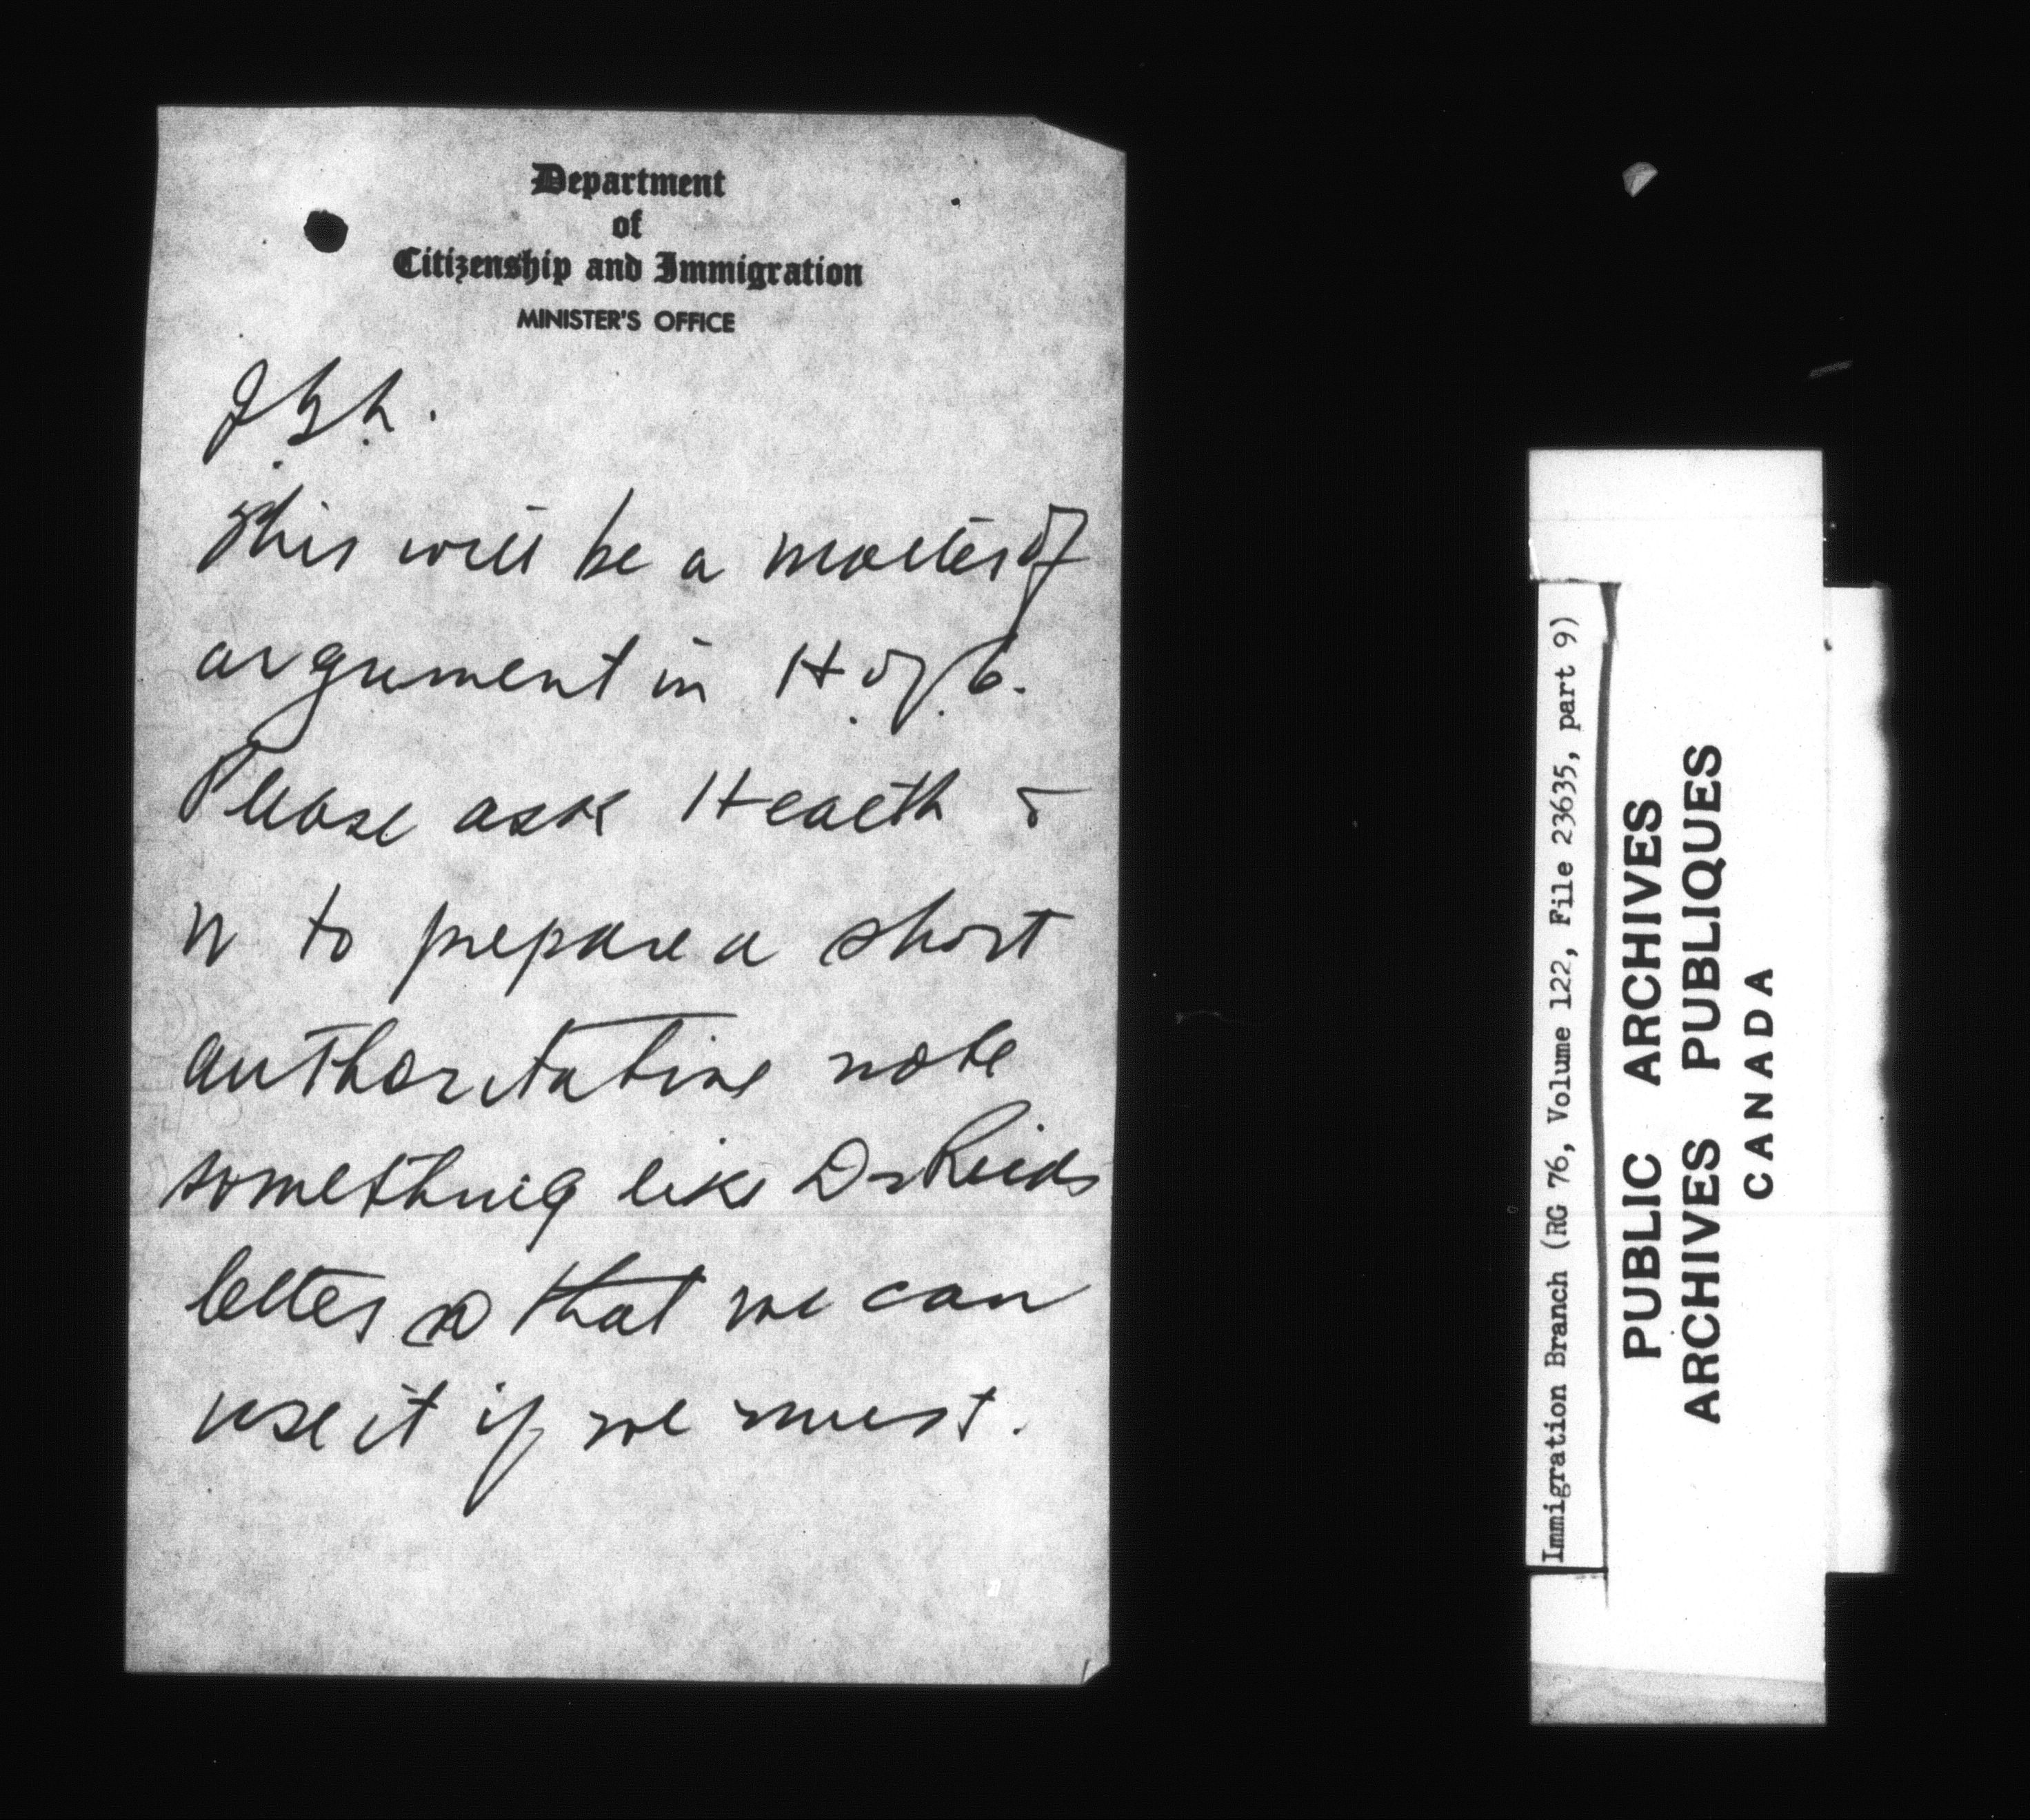 Department
of
Citizenship and Immigration
MINISTER'S OFFICE
This will be a matter of
argument in H. of C.
Please ask Health &
W to prepare a short
authoritative note
something like Dr Reids
letter so that we can
use it if we must.
Immigration Branch (RG 76, Volume 122, File 23635, part 9)
PUBLIC ARCHIVES
ARCHIVES PUBLIQUES
CANADA